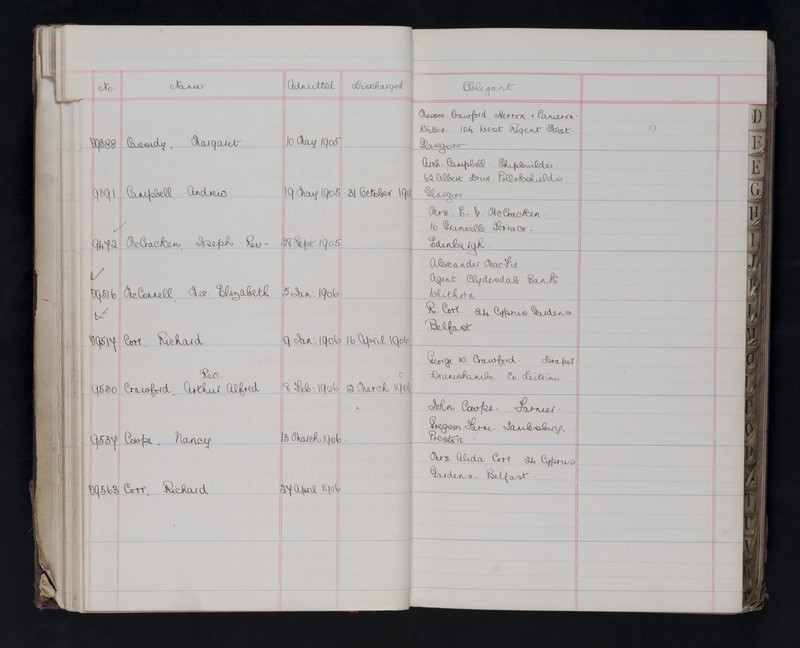 No. Name Admitted Discharged Obligant
Messrs Crawford, Herron & Cameron.
Writers. 104 West Regent Street.
9388 Cassidy, Margaret 10 May 1905 Glasgow
Arch Campbell Shipbuilder
62 Albert Drive. Pollokshields.
9391 Campbell, Andrew 19 May 1905 31 October 190 Glasgow
Mrs. E. McCracken.
16 Granville Terrace.
9472 McCracken, Joseph Rev. 28 Sept 1905 Edinburgh.
Alexander MacFie
Agent Clydesdale Bank
9516 McConnell, Mrs. Elizabeth 5 Jan. 1906 Whithorn
R. Corr. 24 Cyprus Gardens
9517 Corr, Richard 9 Jan. 1906 16 April 1906 Belfast.
George W. Crawford. Draper
Rev.
Drumshambo. Co. Leitrim.
9530 Crawford, Arthur Alfred 8 Feb. 1906 12 March 1906
John Cowpe. Farmer.
Farm. Samlesbury.
9537 Cowpe, Nancy 13 March 1906 Preston
Mrs. Alida Corr 24 Cyprus
Gardens. Belfast.
9563 Corr, Richard 27 April 1906
D
E
F
G
H
I
J
K
L
M
O
P
R
T
U
V